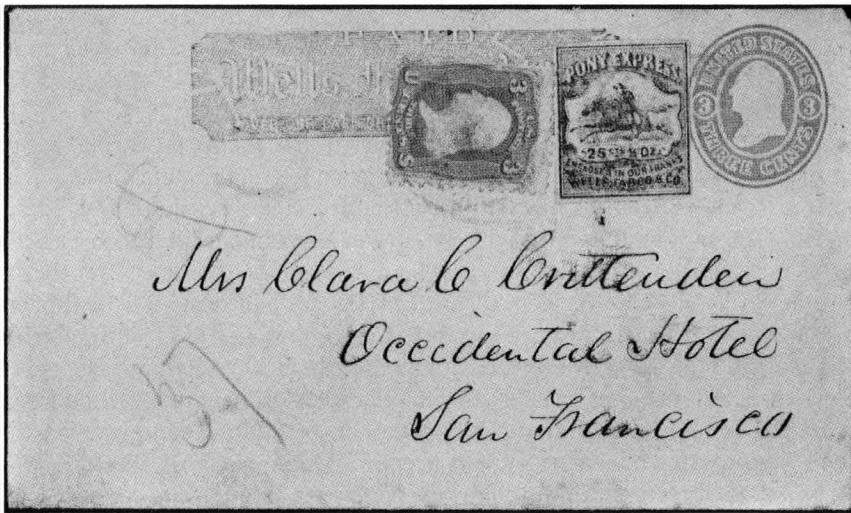 PAID
PONY EXPRESS
25 CTS ½ OZ.
ENCLOSED IN OUR FRANKS
WELLS, FARGO & CO.
U
3
3
UNITED STATES
3 3
THREE CENTS
Mrs Clara C Crittenden
Occidental Hotel
San Francisco